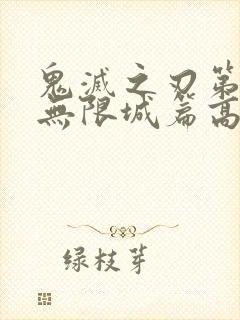 鬼滅之刃第
無限城篇高
绿枝芽